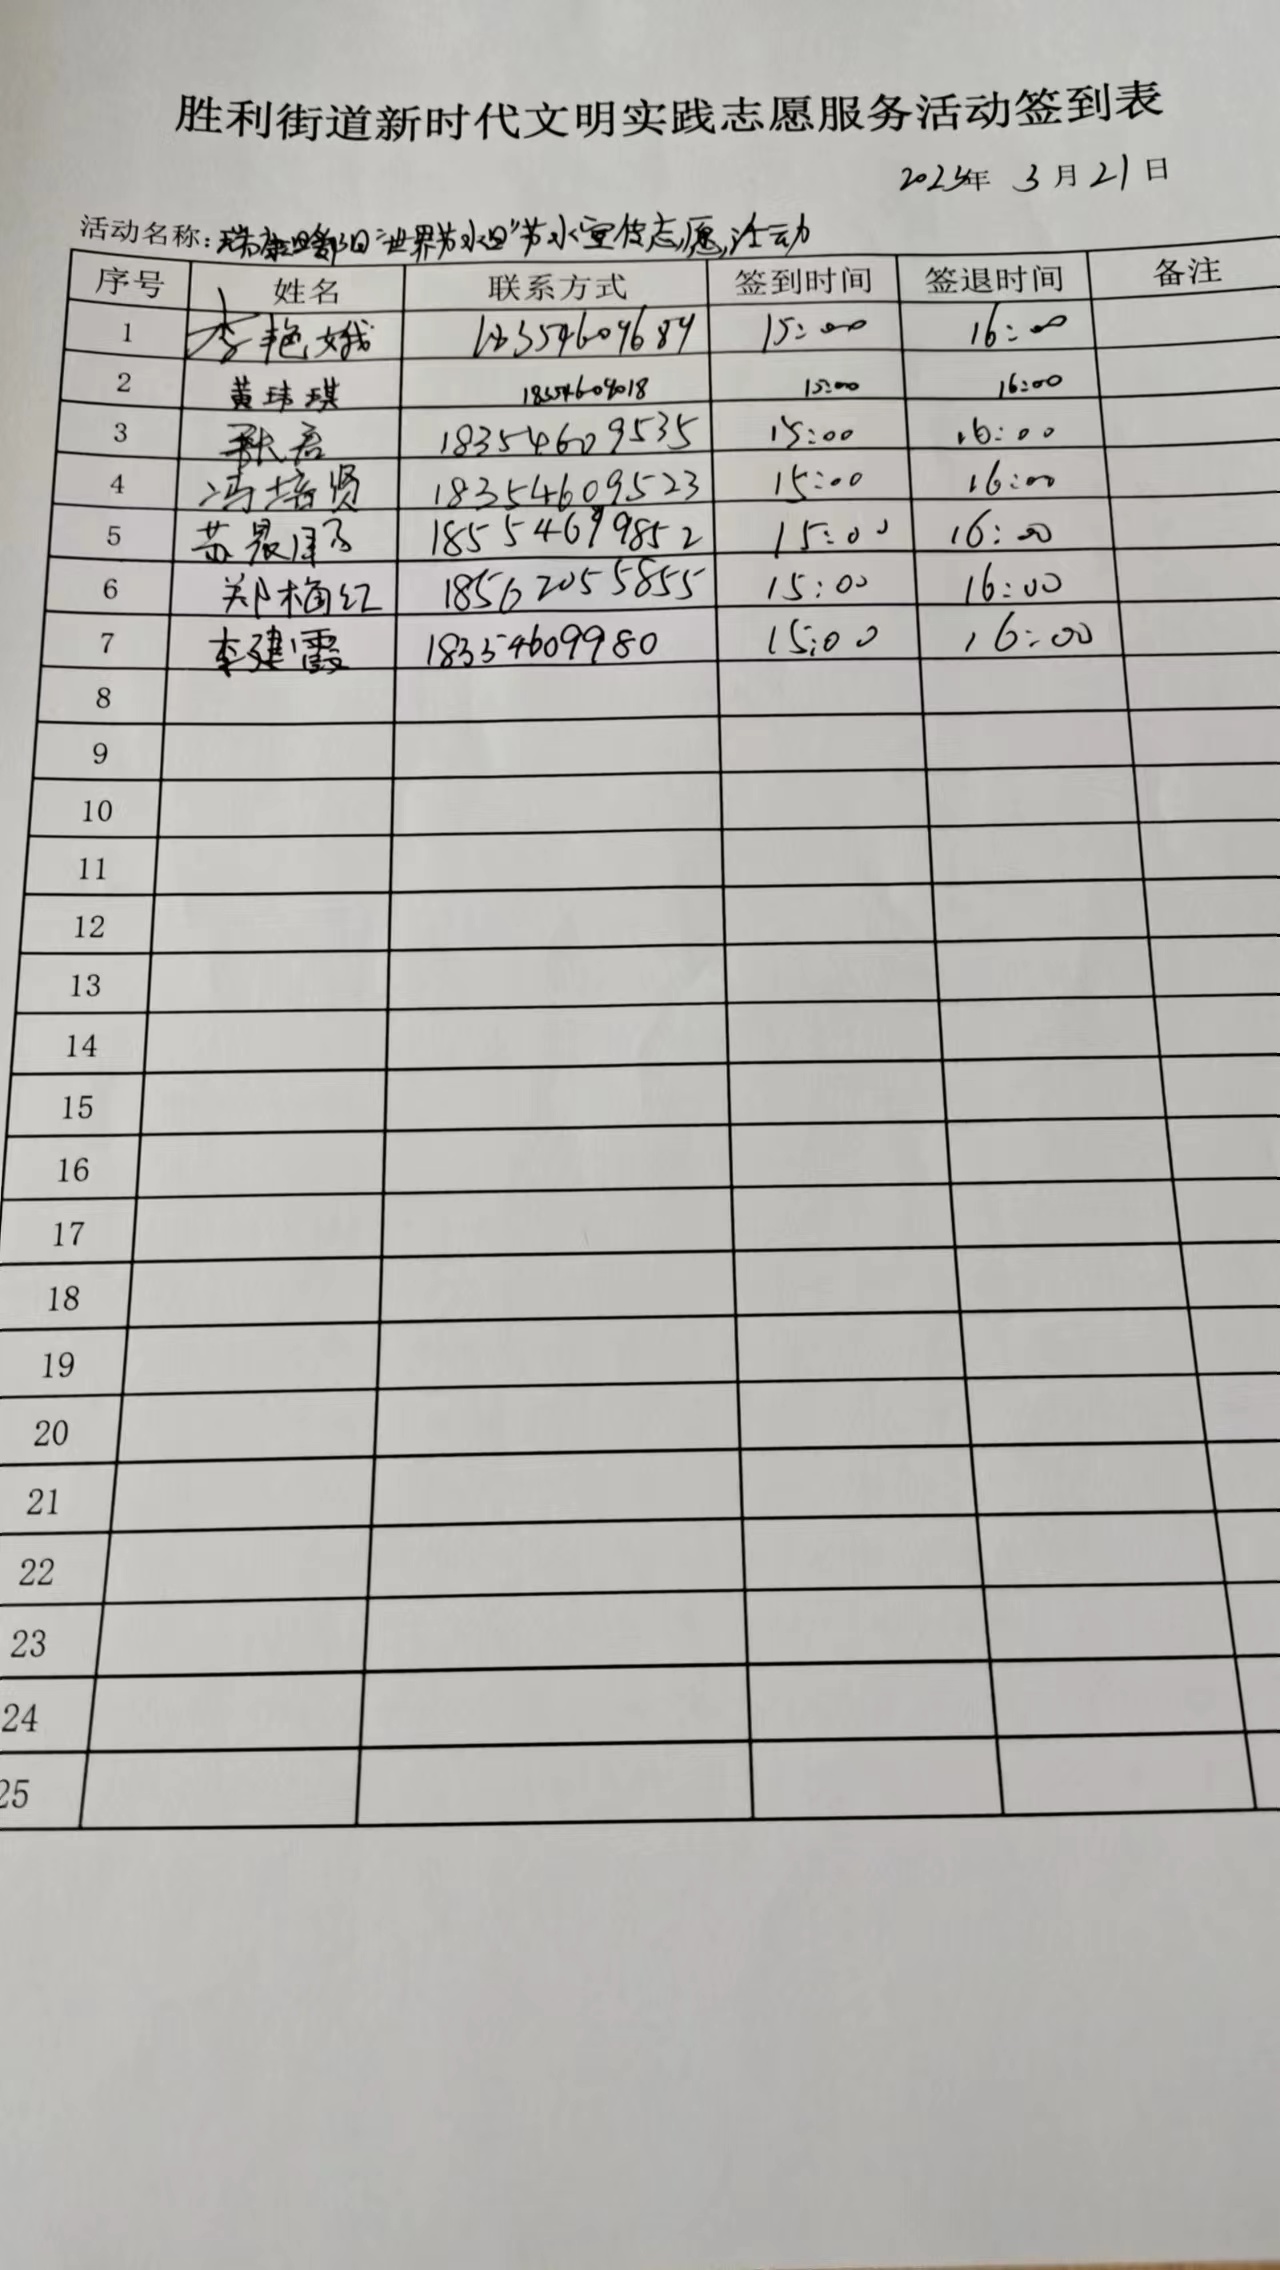 胜利街道新时代文明实践志愿服务活动签到表
年 3月21日
活动名称: "世界节水日"节水宣传志愿活动
序号 姓名 联系方式 签到时间 签退时间 备注
1 李艳娥 18354609689 15:00 16:00
2 黄玮琪 15:00 16:00
3 18354609535 15:00 16:00
4 冯培贤 18354609523 15:00 16:00
5 苏 15:00 16:00
6 郑梅红 18562055855 15:00 16:00
7 李建霞 18354609980 15:00 16:00
8
9
10
11
12
13
14
15
16
17
18
19
20
21
22
23
24
25